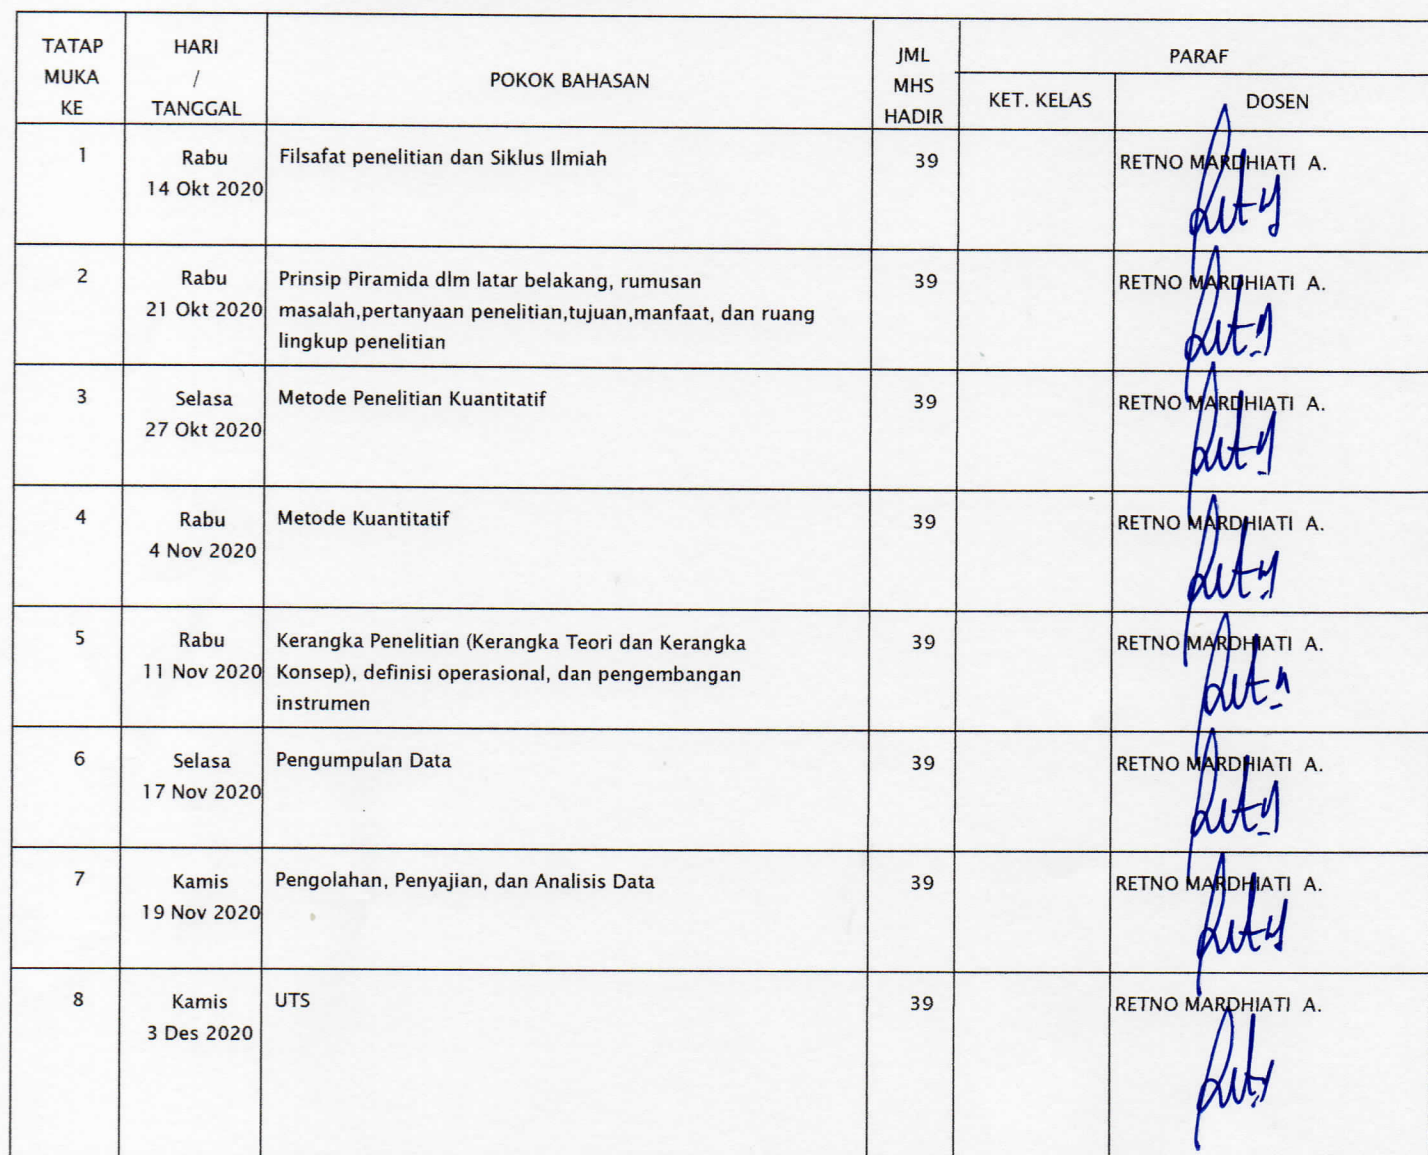 TATAP MUKA KE
HARI / TANGGAL
POKOK BAHASAN
JML MHS HADIR
PARAF
KET. KELAS
DOSEN
1
Rabu
14 Okt 2020
Filsafat penelitian dan Siklus Ilmiah
39
RETNO MARDHIATI A.
2
Rabu
21 Okt 2020
Prinsip Piramida dlm latar belakang, rumusan
masalah,pertanyaan penelitian,tujuan,manfaat, dan ruang
lingkup penelitian
39
RETNO MARDHIATI A.
3
Selasa
27 Okt 2020
Metode Penelitian Kuantitatif
39
RETNO MARDHIATI A.
4
Rabu
4 Nov 2020
Metode Kuantitatif
39
RETNO MARDHIATI A.
5
Rabu
11 Nov 2020
Kerangka Penelitian (Kerangka Teori dan Kerangka
Konsep), definisi operasional, dan pengembangan
instrumen
39
RETNO MARDHIATI A.
6
Selasa
17 Nov 2020
Pengumpulan Data
39
RETNO MARDHIATI A.
7
Kamis
19 Nov 2020
Pengolahan, Penyajian, dan Analisis Data
39
RETNO MARDHIATI A.
8
Kamis
3 Des 2020
UTS
39
RETNO MARDHIATI A.